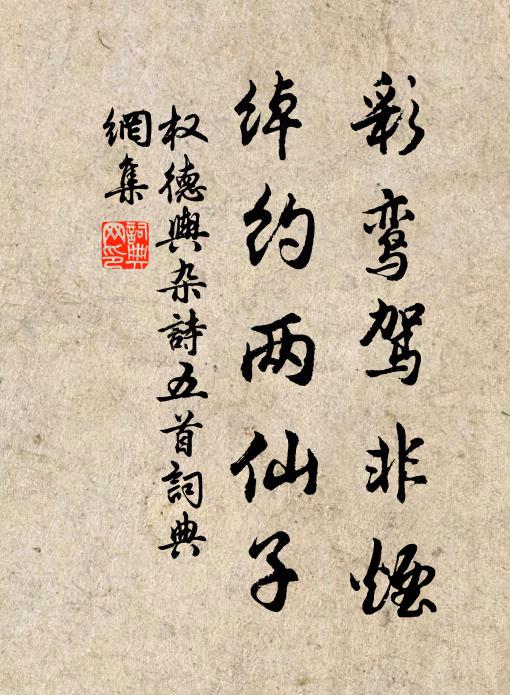 彩鸾驾非烟
绰约两仙子
权德舆杂詩五首詞典
網集
詞典
网印